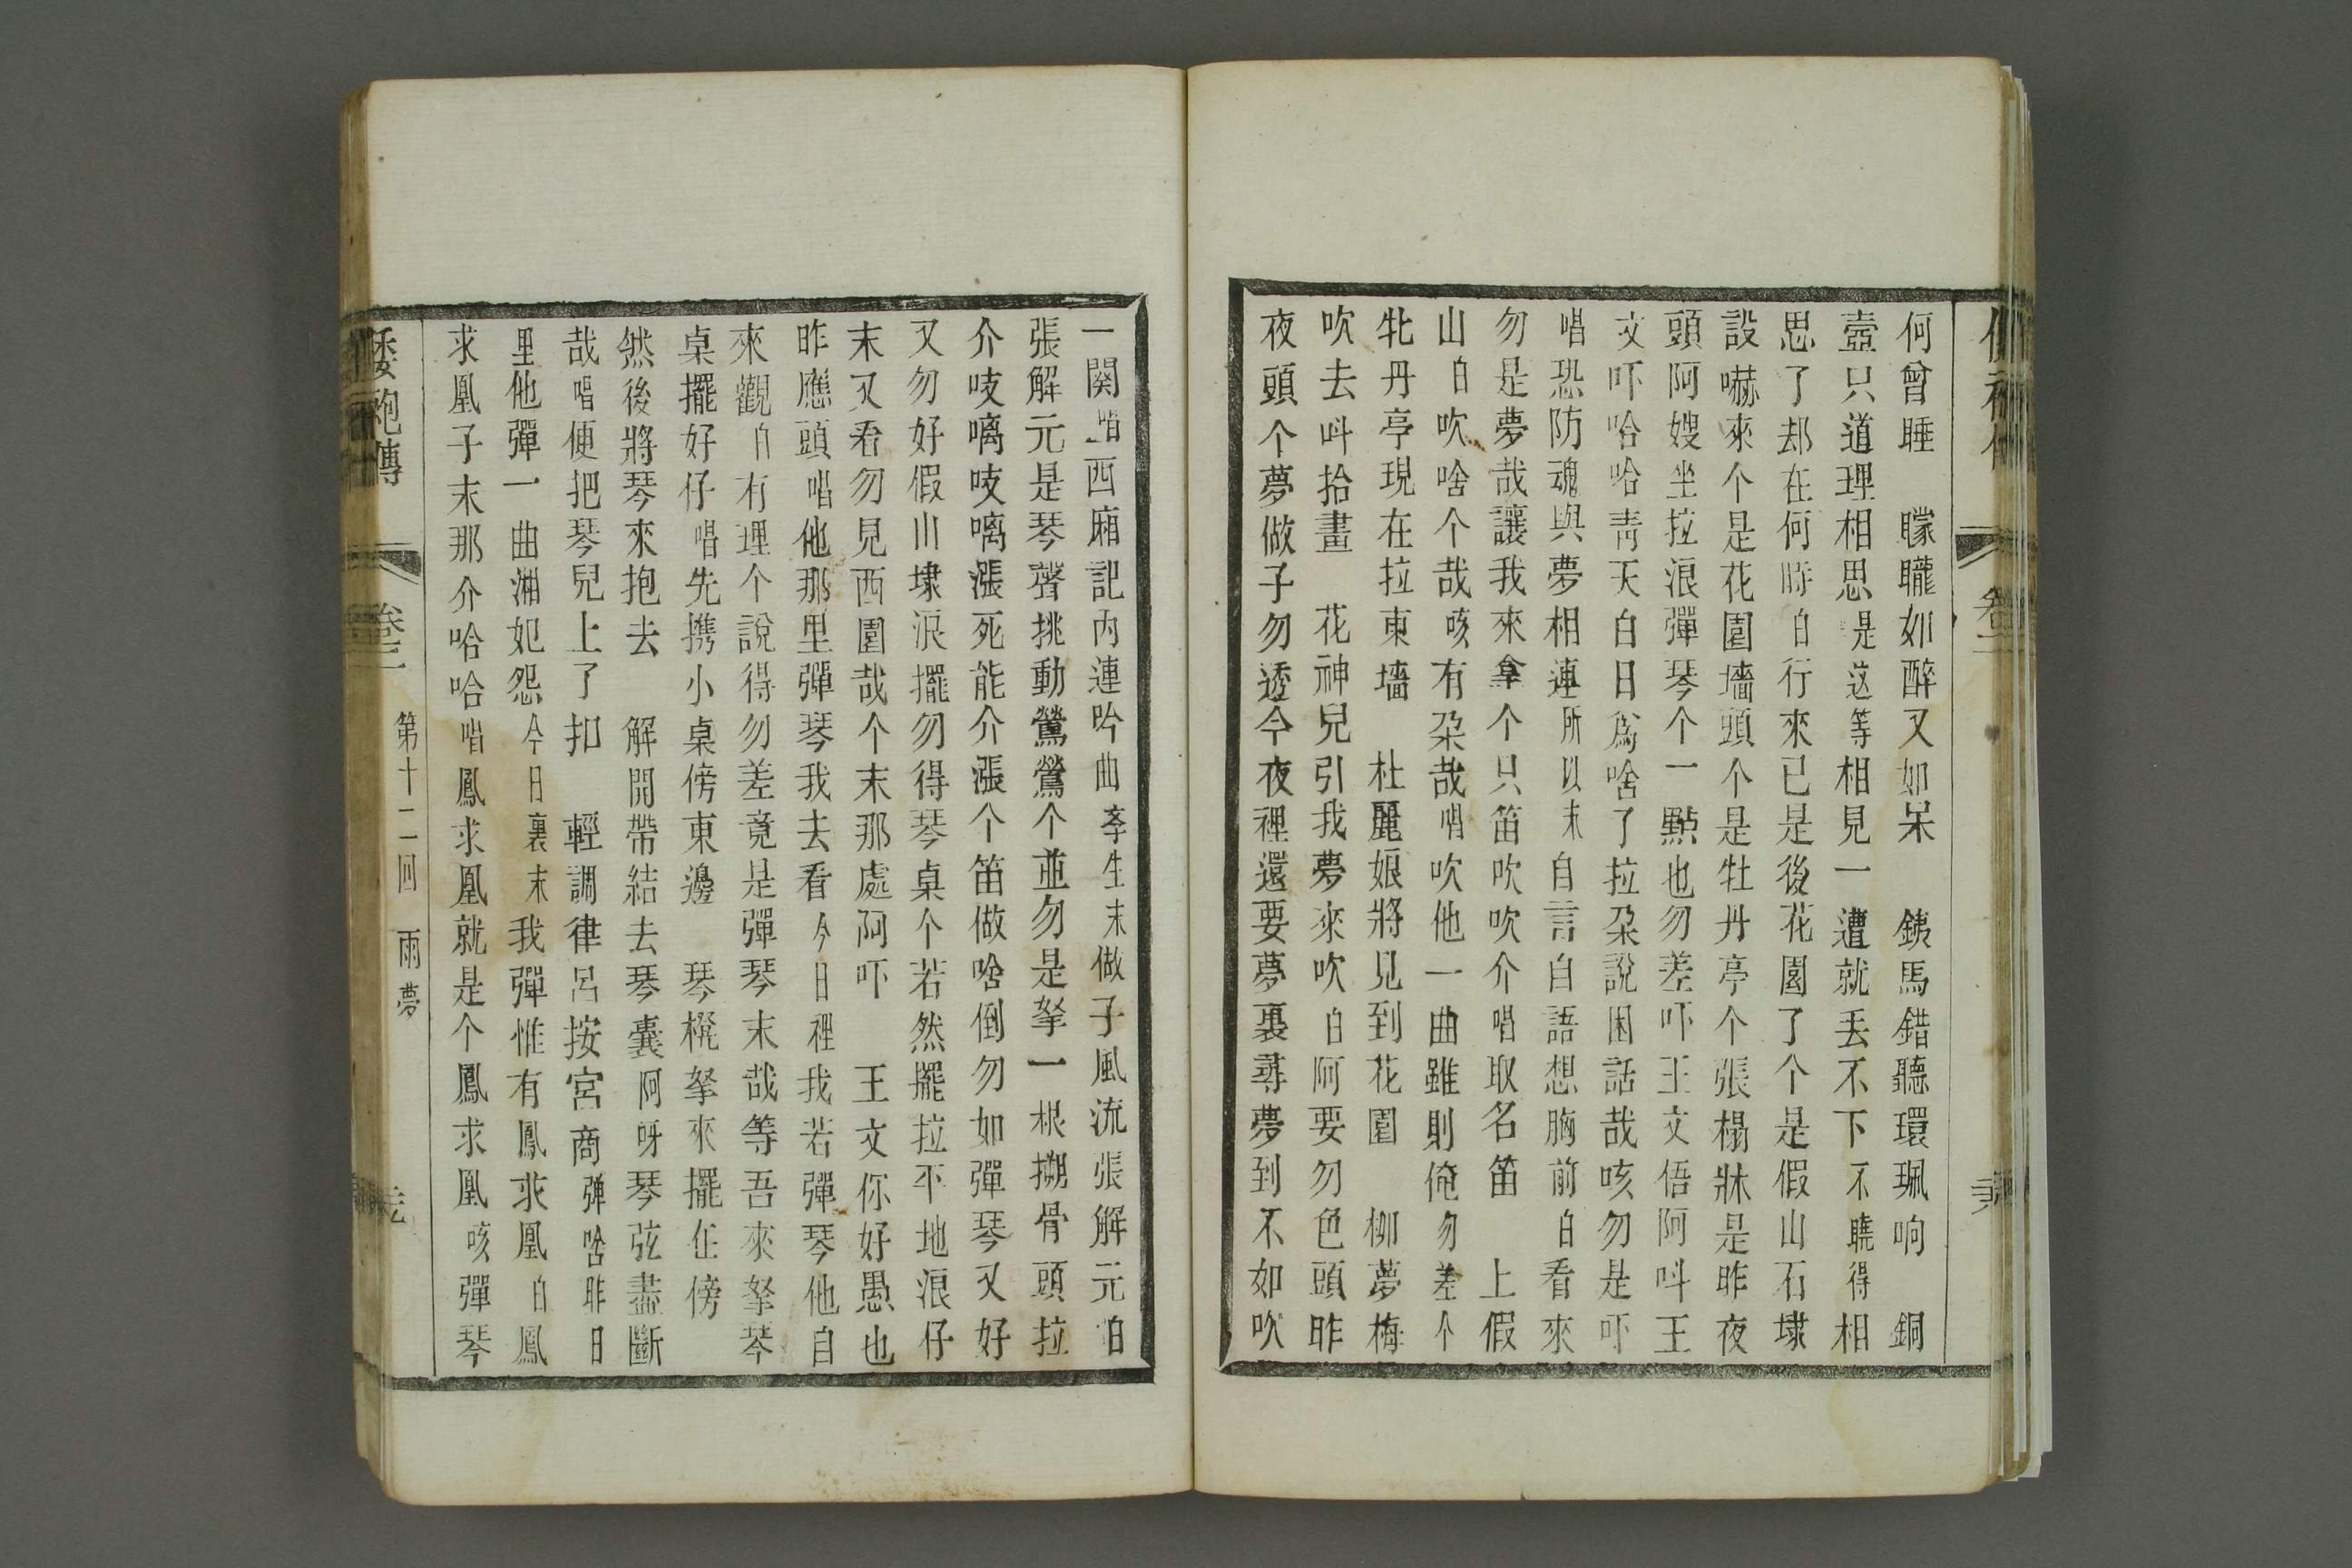 何曾睡　矇矓如醉又如呆　鉄馬錯聽環珮响　銅
壺只道理相思是这等相見一遭就丟不下不曉得相
思了却在何時白行來已是後花園了个是假山石埭
設嚇來个是花園墻頭个是牡丹亭个張榻牀是昨夜
頭阿嫂坐拉浪彈琴个一點也勿差吓王文俉阿呌王
文吓哈哈靑天白日爲啥了拉朶說困話哉咳勿是吓
唱恐防魂與夢相連所以末自言自語想胸前白看來
勿是夢哉讓我來拿个只笛吹吹介唱取名笛　上假
山白吹啥个哉咳有朶哉唱吹他一曲雖則俺勿差个
牝丹亭現在拉東墻　杜麗娘將見到花園　柳夢梅
吹去呌拾畫　花神兒引我夢來吹白阿要勿色頭昨
夜頭个夢做子勿透今夜裡還要夢裏尋夢到不如吹
一闋唱西廂記內連吟曲李生末做子風流張解元白
張解元是琴聲挑動鶯鶯个並勿是拏一根搠骨頭拉
介吱㗿吱㗿漲死能介漲个笛做啥倒勿如彈琴又好
又勿好假山埭浪擺勿得琴桌个若然擺拉平地浪仔
末又看勿見西園哉个末那處阿吓　王文你好愚也
昨應頭唱他那里彈琴我去看今日裡我若彈琴他自
來觀白有理个說得勿差竟是彈琴末哉等吾來拏琴
桌擺好仔唱先携小桌傍東邊　琴櫈拏來擺在傍
然後將琴來抱去　解開帶結去琴囊阿呀琴弦盡斷
哉唱便把琴兒上了扣　輕調律呂按宮商弹啥昨日
里他彈一曲湘妃怨今日裏末我彈惟有鳳求凰白鳳
求凰子末那介哈哈唱鳳求凰就是个鳳求凰咳彈琴
倭袍傳　卷二　第十二回　雨夢